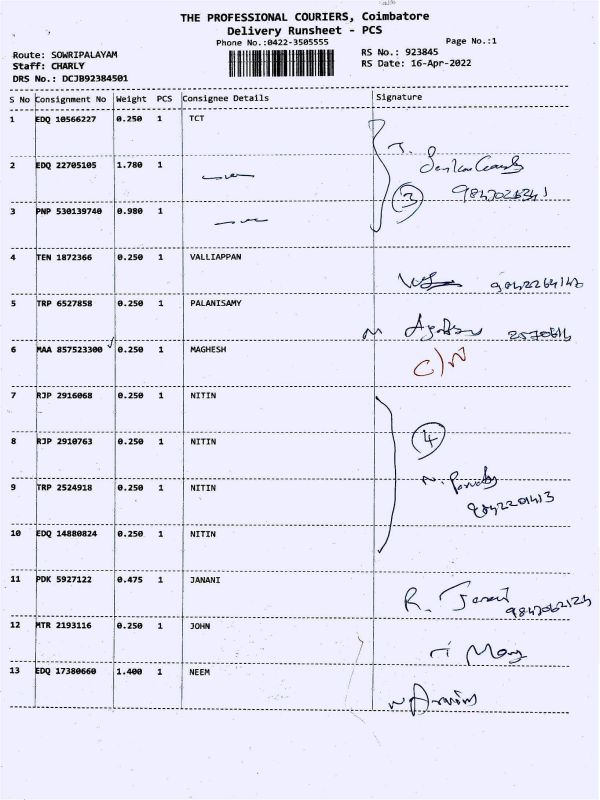 THE PROFESSIONAL COURIERS, Coimbatore
Delivery Runsheet - PCS
Phone No.:0422-3505555
Page No.:1
Route: SOWRIPALAYAM
RS No.: 923845
Staff: CHARLY
RS Date: 16-Apr-2022
DRS No.: DCJB92384501
S No Consignment No Weight PCS Consignee Details Signature
1 EDQ 10566227 0.250 1 TCT
2 EDQ 22705105 1.780 1
3 PNP 530139740 0.980 1
3
4 TEN 1872366 0.250 1 VALLIAPPAN
5 TRP 6527858 0.250 1 PALANISAMY
6 MAA 857523300 0.250 1 MAGHESH
C/N
7 RJP 2916068 0.250 1 NITIN
8 RJP 2910763 0.250 1 NITIN
4
9 TRP 2524918 0.250 1 NITIN
9842201413
10 EDQ 14880824 0.250 1 NITIN
11 PDK 5927122 0.475 1 JANANI
12 MTR 2193116 0.250 1 JOHN
13 EDQ 17380660 1.400 1 NEEM